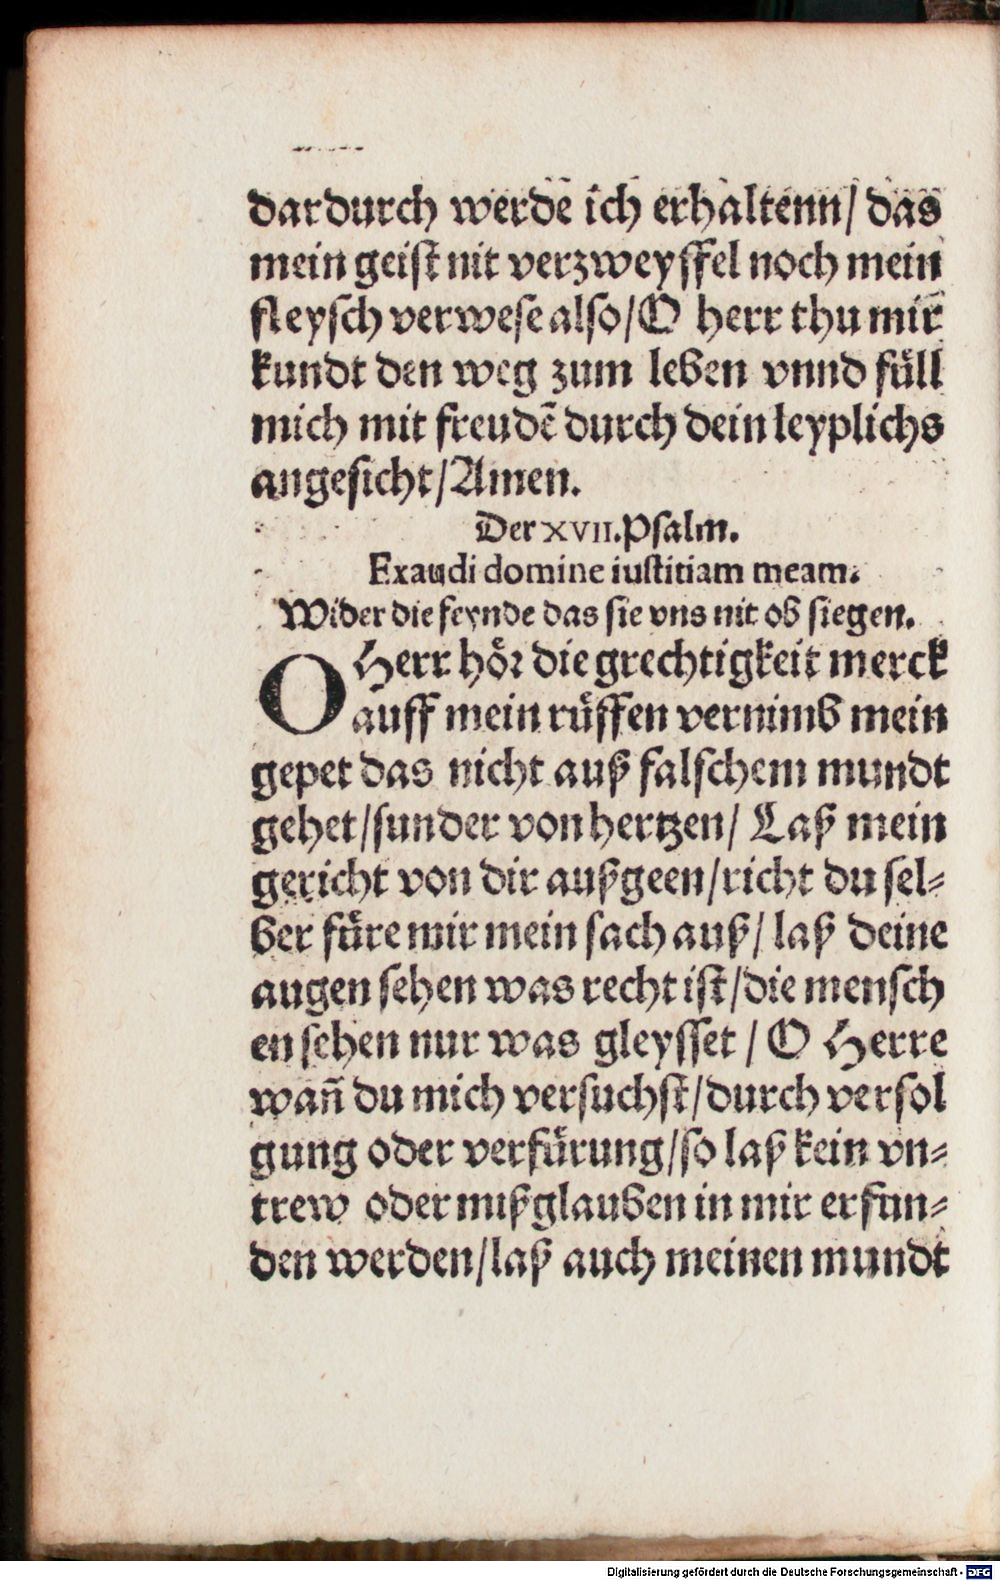 dardurch werdē ich erhaltenn/ das
mein geist nit verzweyffel noch mein
fleysch verwese also/ O herr thu mir
kundt den weg zum leben vnnd füll
mich mit freudē durch dein leyplichs
angesicht/ Amen.
Der XVII. Psalm.
Exaudi domine iustitiam meam.
Wider die feynde das sie vns nit ob siegen.
O Herr hör die grechtigkeit merck
auff mein rüffen vernimb mein
gepet das nicht auß falschem mundt
gehet/ sunder von hertzen/ Laß mein
gericht von dir außgeen/ richt du sel-
ber füre mir mein sach auß/ laß deine
augen sehen was recht ist/ die mensch
en sehen nur was gleysset / O Herre
wañ du mich versuchst/ durch verfol
gung oder verfürung/ so laß kein vn-
trew oder mißglauben in mir erfun-
den werden/ laß auch meinen mundt
Digitalisierung gefördert durch die Deutsche Forschungsgemeinschaft - DFG